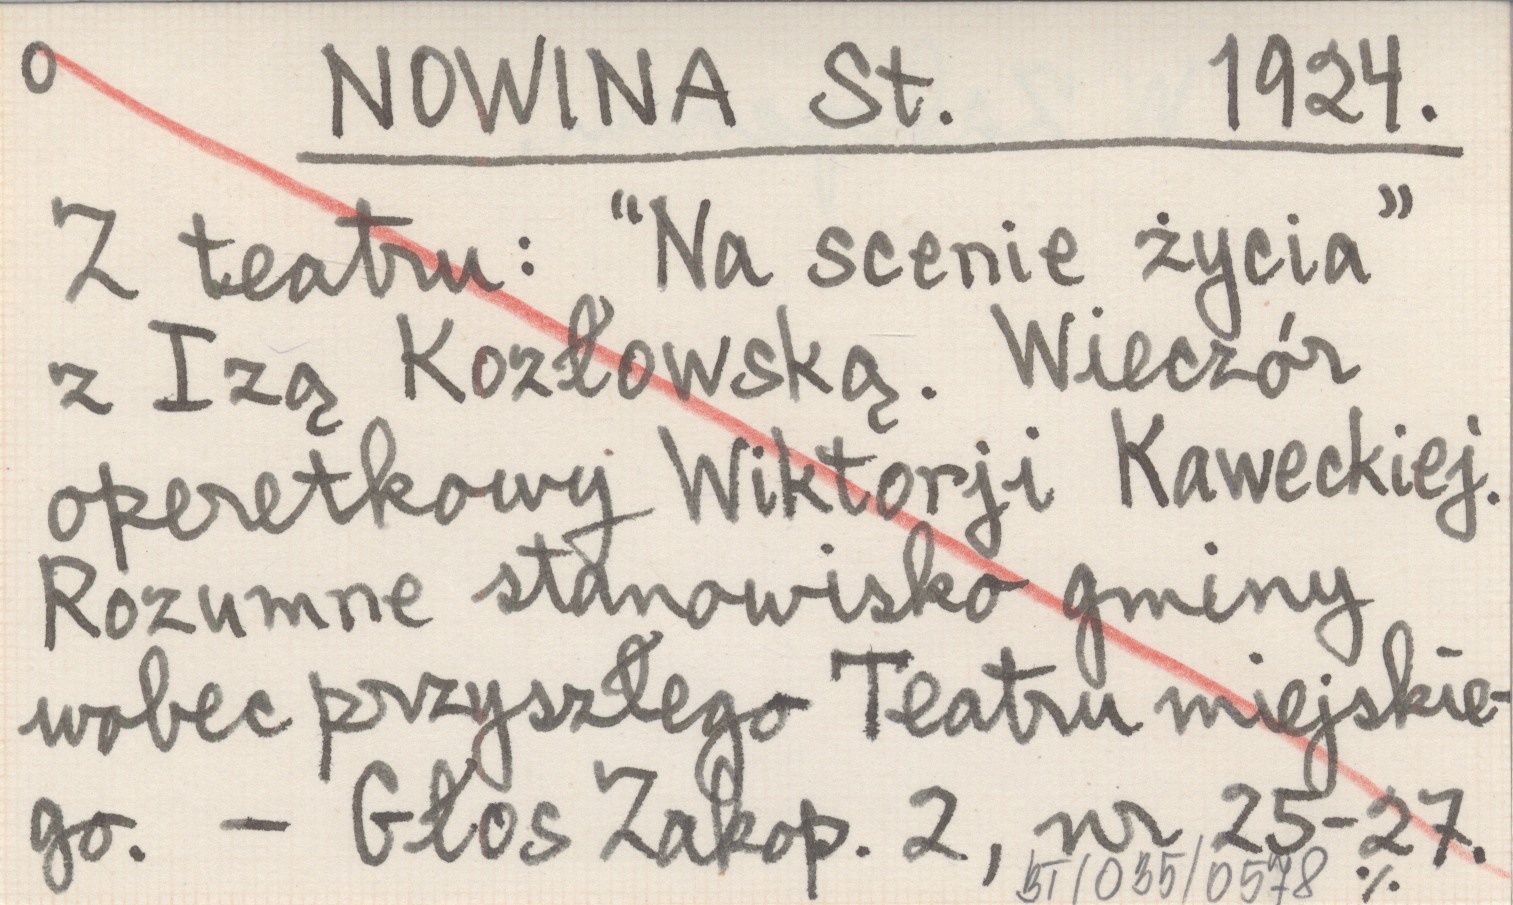 o NOWINA St. 1924.
Z teatru: "Na scenie życia"
z Izą Kozłowską. Wieczór
operetkowy Wiktorji Kaweckiej.
Rozumne stanowisko gminy
wobec przyszłego Teatru miejskie-
go. – Głos Zakop. 2, nr 25-27.
BT/035/0578 ./.